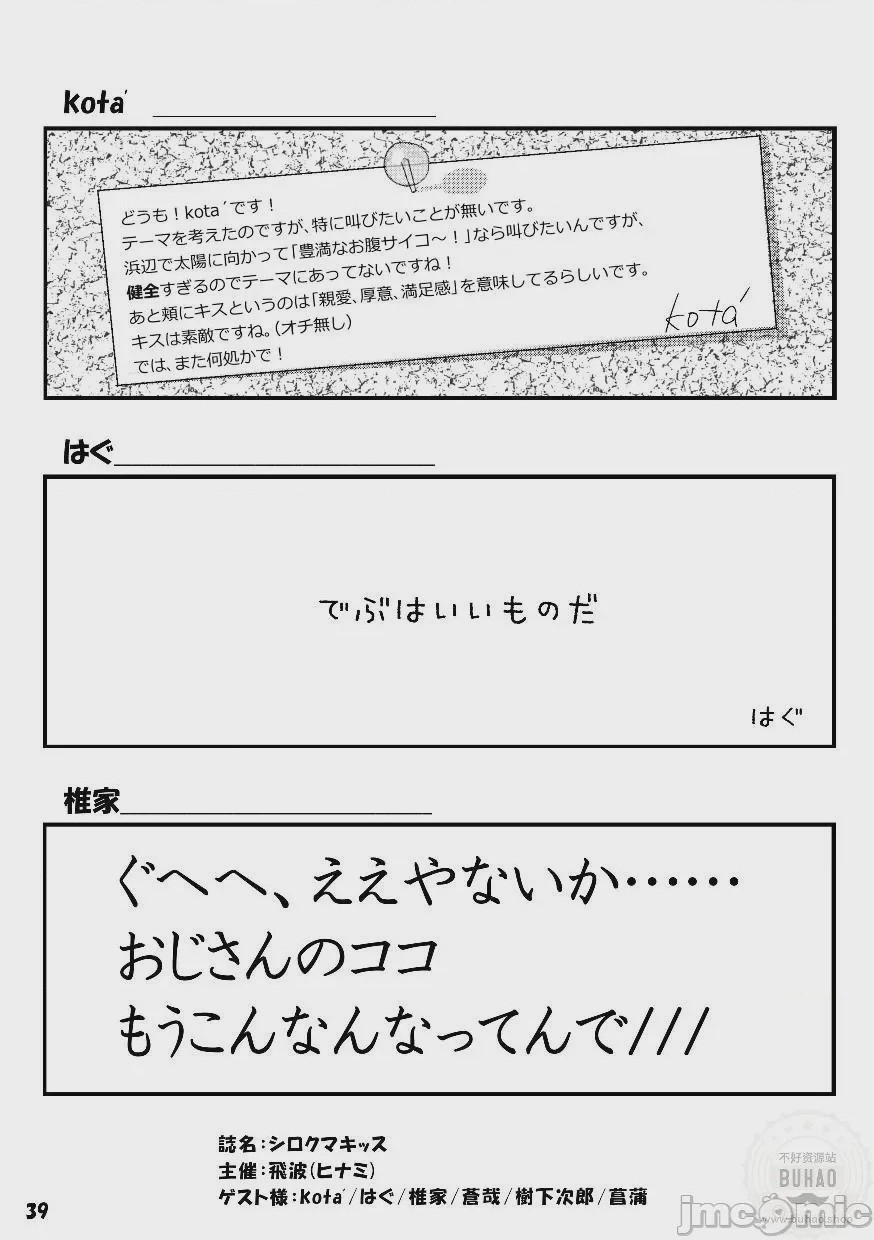 kota´
どうも！kota´です！
テーマを考えたのですが、特に叫びたいことが無いです。
浜辺で太陽に向かって「豊満なお腹サイコ～！」なら叫びたいんですが、
健全すぎるのでテーマにあってないですね！
あと頬にキスというのは「親愛、厚意、満足感」を意味してるらしいです。
キスは素敵ですね。（オチ無し）
では、また何処かで！
kota´
はぐ
でぶはいいものだ
はぐ
椎家
ぐへへ、ええやないか……
おじさんのココ
もうこんなんなってんで///
誌名：シロクマキッス
主催：飛波(ヒナミ)
ゲスト様：kota´/はぐ/椎家/蒼哉/樹下次郎/菖蒲
39
不好资源站
BUHAO
jmcomic
www.buhao.shop